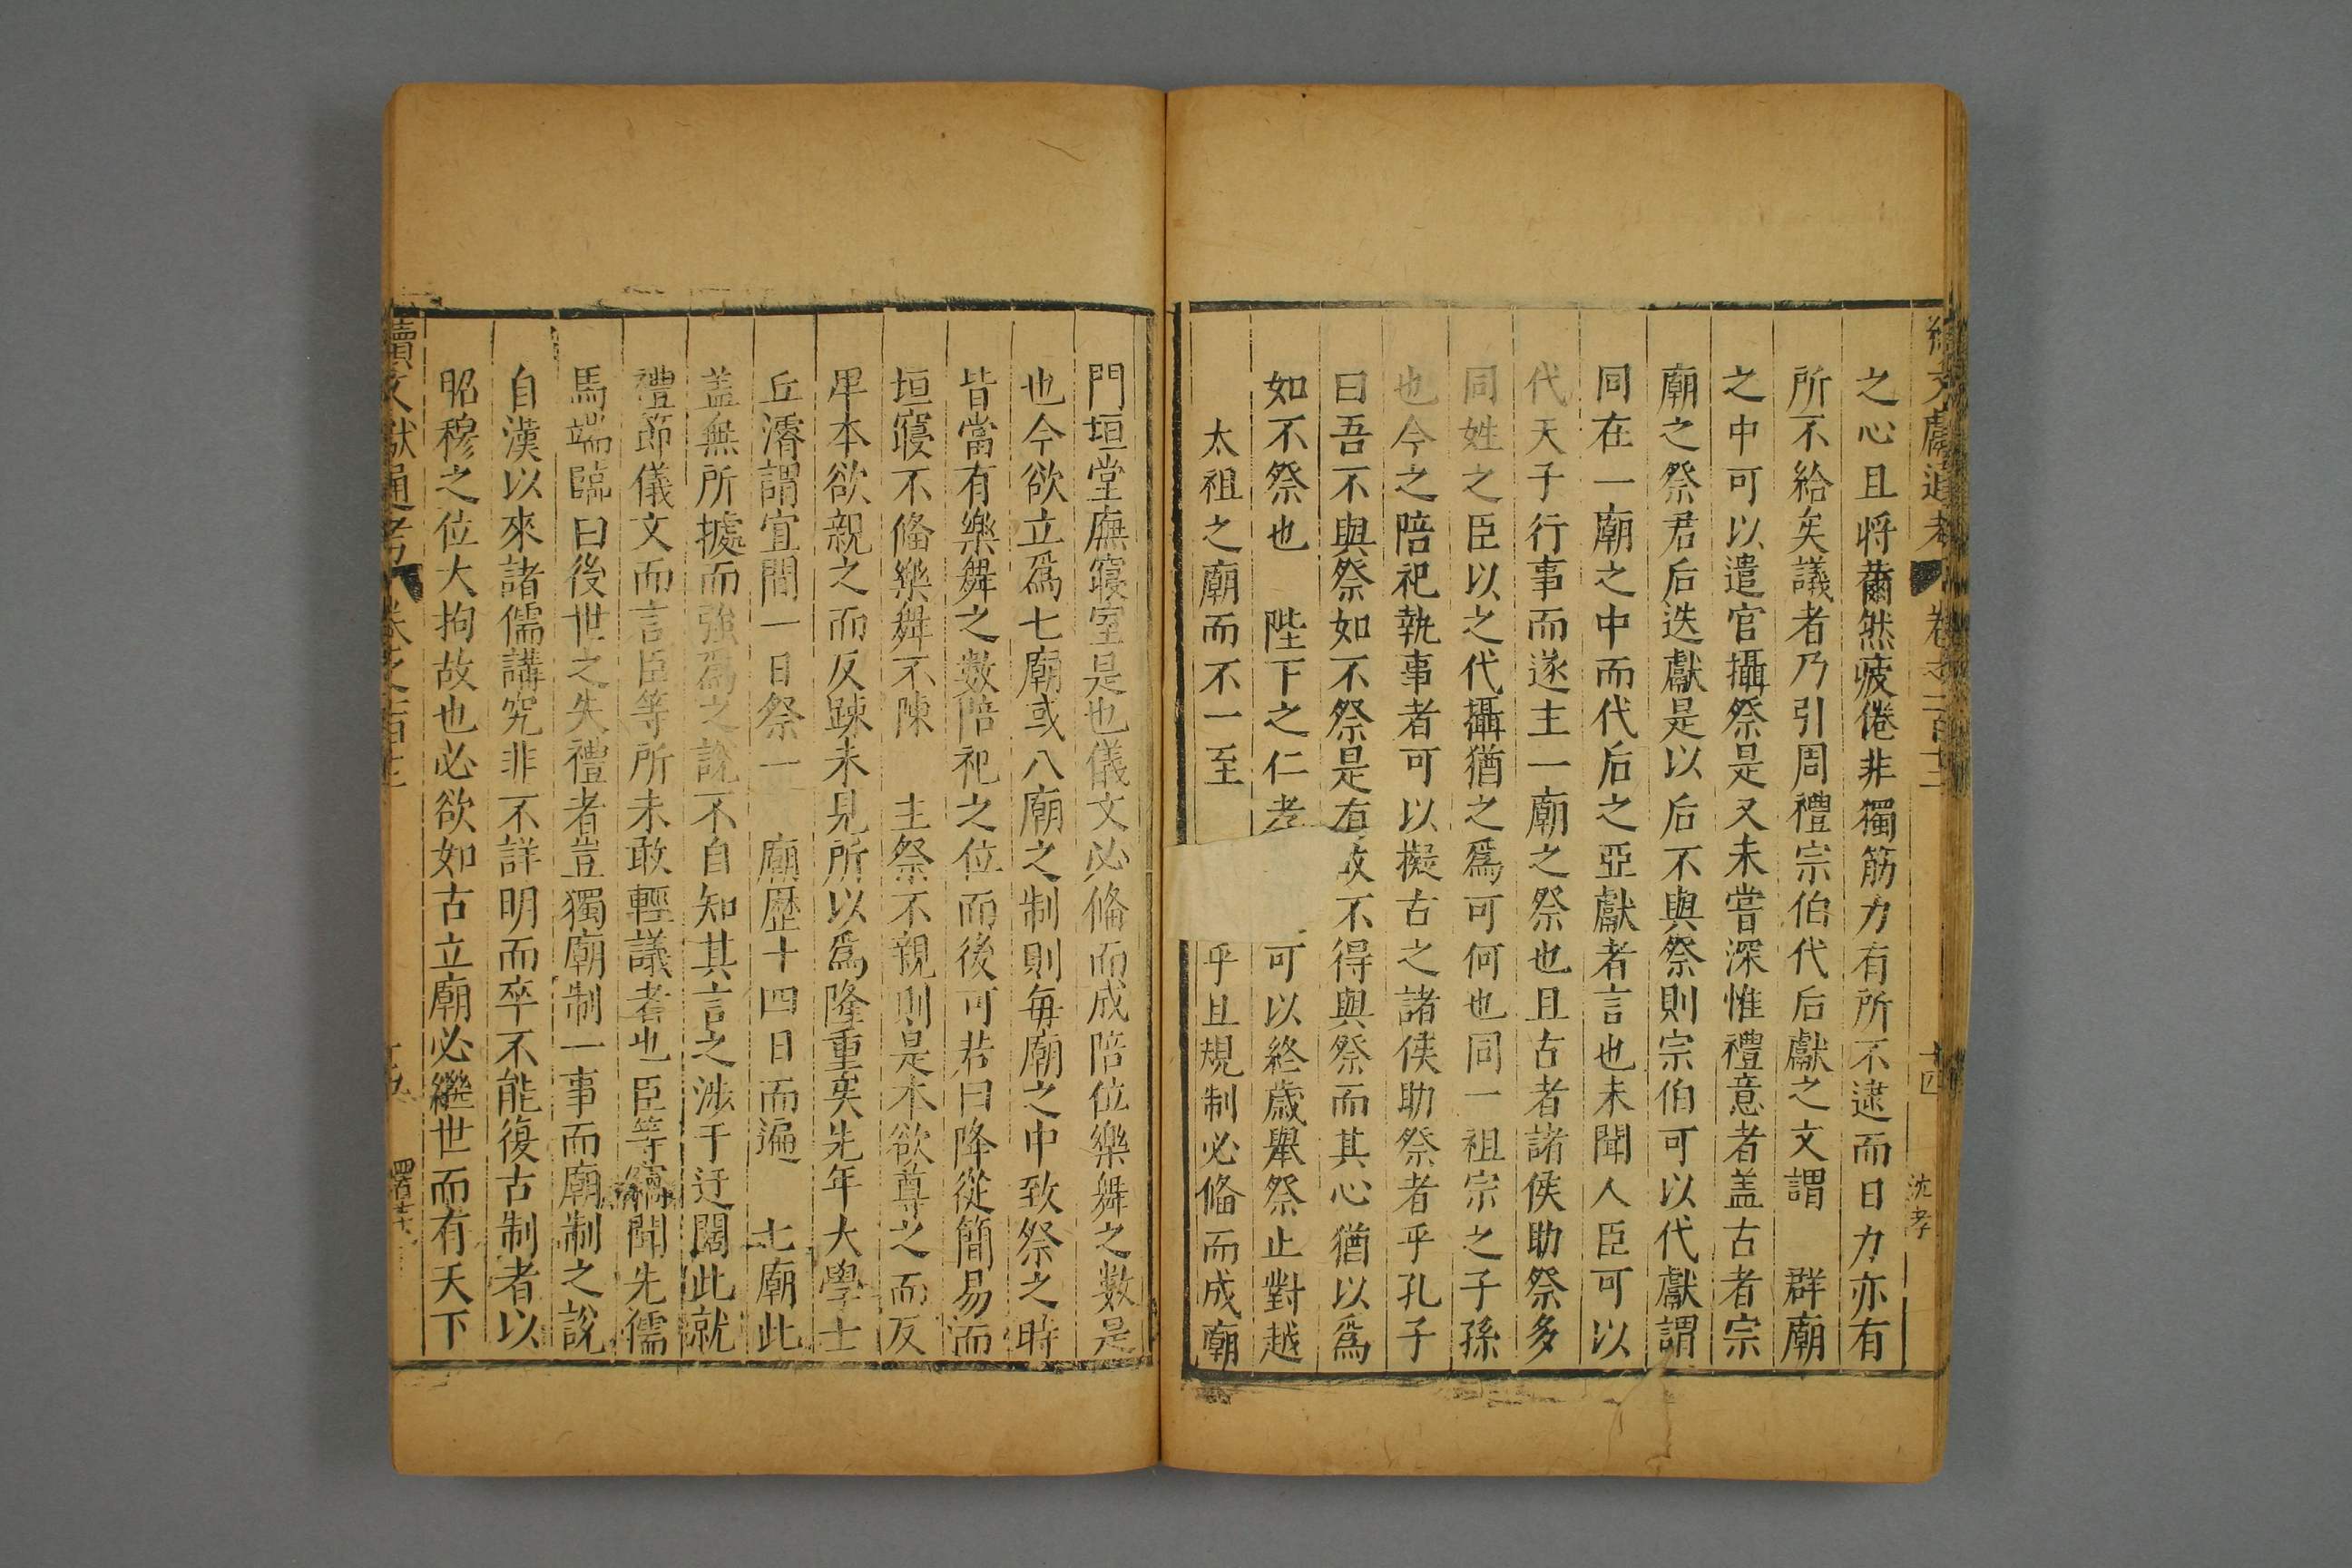 續文獻通考 卷之一百十二 十四 沈孝
之心且將薾然疲倦非獨筋力有所不逮而日力亦有
所不給矣議者乃引周禮宗伯代后獻之文謂 群廟
之中可以遣官攝祭是又未嘗深惟禮意者盖古者宗
廟之祭君后迭獻是以后不與祭則宗伯可以代獻謂
同在一廟之中而代后之亞獻者言也未聞人臣可以
代天子行事而遂主一廟之祭也且古者諸侯助祭多
同姓之臣以之代攝猶之爲可何也同一祖宗之子孫
也今之陪祀執事者可以擬古之諸侯助祭者乎孔子
曰吾不與祭如不祭是有故不得與祭而其心猶以爲
如不祭也 陛下之仁孝可以終歲舉祭止對越
太祖之廟而不一至乎且規制必俻而成廟
門垣堂廡寢室是也儀文必俻而成陪位樂舞之數是
也今欲立爲七廟或八廟之制則每廟之中致祭之時
皆當有樂舞之數陪祀之位而後可若曰降從簡易而
垣寢不俻樂舞不陳 主祭不親則是本欲尊之而反
卑本欲親之而反踈未見所以爲隆重矣先年大學士
丘濬謂宜間一日祭一 廟歷十四日而遍 七廟此
盖無所據而強爲之說不自知其言之涉于迂闊此就
禮節儀文而言臣等所未敢輕議者也臣等竊聞先儒
馬端臨曰後世之失禮者豈獨廟制一事而廟制之說
自漢以來諸儒講究非不詳明而卒不能復古制者以
昭穆之位大拘故也必欲如古立廟必繼世而有天下
續文獻通考 卷之一百十二